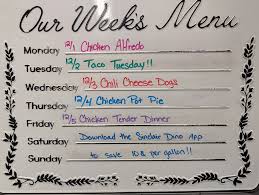 Our Week's Menu
Monday 12/1 Chicken Alfredo
Tuesday 12/2 Taco Tuesday!!
Wednesday 12/3 Chili Cheese Dogs
Thursday 12/4 Chicken Pot Pie
Friday 12/5 Chicken Tender Dinner
Saturday Download the Sinclair Dino App
Sunday to save 10¢ per gallon!!